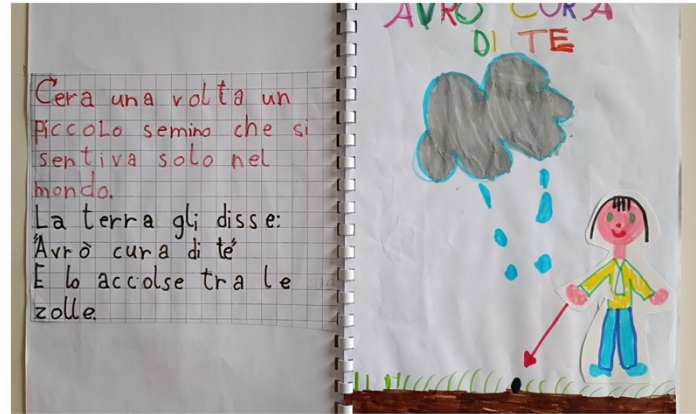 Cera una volta un
piccolo semino che si
sentiva solo nel
mondo.
La terra gli disse:
"Avrò cura di te"
E lo accolse tra le
zolle.
AVRÒ CURA
DI TE